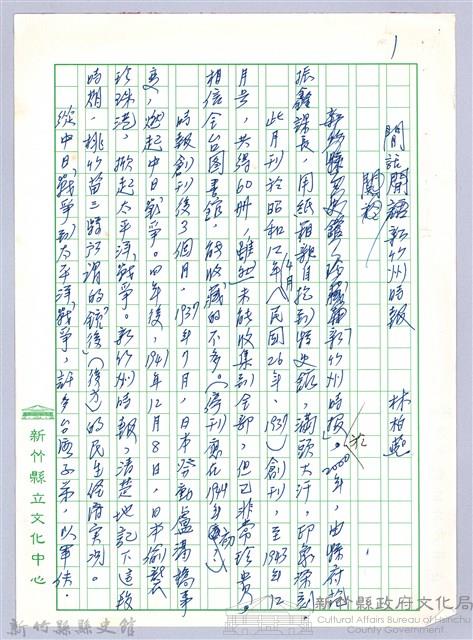 1
閒話閒語新竹州時報
林柏燕
新竹縣縣史館,珍藏有「新竹州時報」。2000年,由縣府
振鑫課長,用紙箱親自抱到縣史館,滿頭大汗,印象深刻。
此月刊於昭和12年4月(民國26年,1937)創刊,至1943年12
月号,共得60冊,雖然未能收集到全部,但已非常珍貴。
相信全台图書館,能收藏的不多。(停刊應在1944年初)
時報創刊後3個月,1937年7月,日本發動盧溝橋事
变,燃起中日戰爭。四年後,1941年12月8日,日本偷襲
珍珠港,掀起太平洋戰爭。新竹州時報,清楚地記下這段
時期,桃竹苗三縣所謂的「銃後」(後方)的民生經濟实况。
從中日戰爭到太平洋戰爭,許多台湾子弟,以軍伕、
新竹縣立文化中心
新竹縣縣史館
新竹縣政府文化局
Cultural Affairs Bureau of Hsinchu
County Government